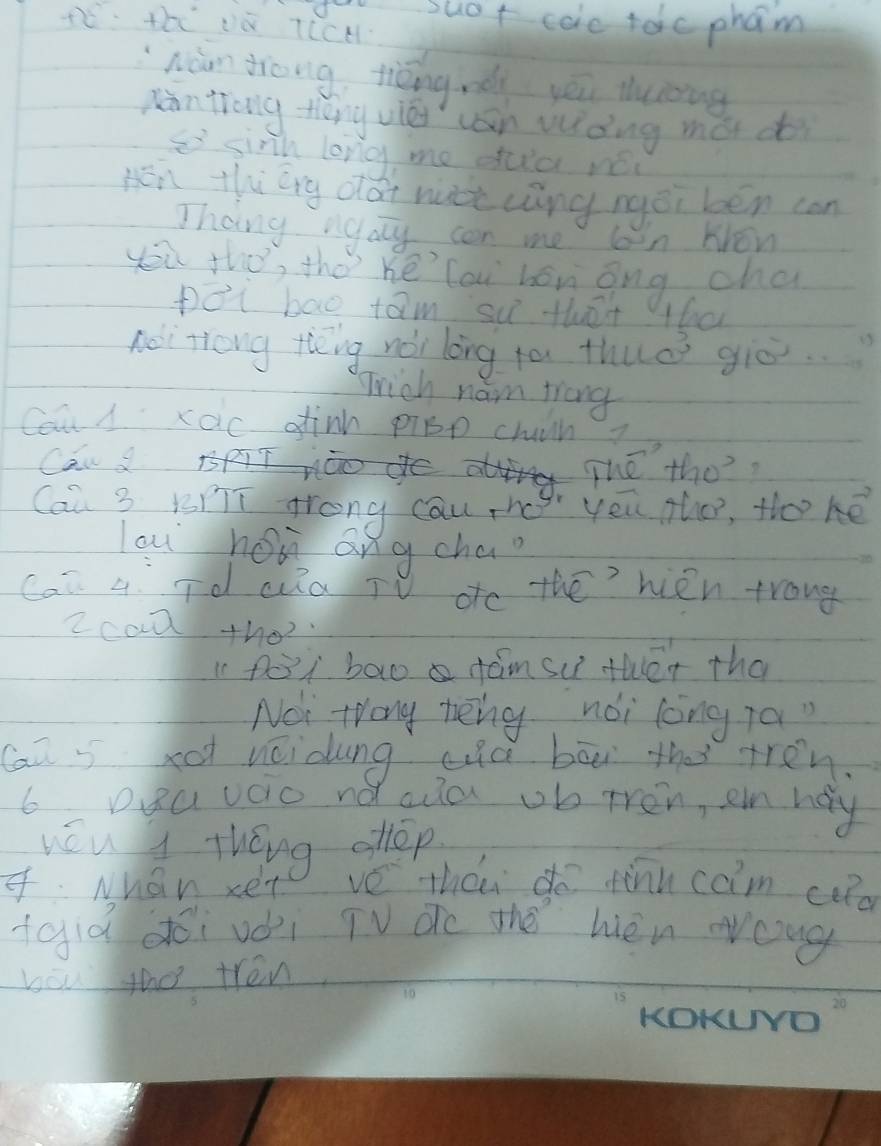 suốt các tác phẩm
Đề: Đọc và TLCH:
"Nằm trong tiếng nói yêu thương
Nằm trong tiếng việt vấn vương một đời
Sơ sinh lòng mẹ đưa nôi
Hồn thiêng đất nước cũng ngồi bên con
Tháng ngày con mẹ lớn khôn
yêu thơ, thơ kể lại hồn ông cha
Đời bao tâm sự thiết tha
Nói trong tiếng nói lòng ta thuở giờ..."
Trích nằm trong
Câu 1 xác định PTBĐ chính ?
Câu 2 BPTT nào đc dùng Thể thơ ?
Câu 3 BPTT trong câu thơ "yêu thơ, thơ kể
lại hồn ông cha"
Câu 4: Td của TV đc thể hiện trong
2 câu thơ:
"Đời bao tâm sự thiết tha
Nói trong tiếng nói lòng ta"
Câu 5 nội dung của bài thơ trên.
6 Dựa vào nd của vb trên, em hãy
nêu 1 thông điệp.
7. Nhận xét về thái độ tình cảm của
tgiả đối với TV đc thể hiện trong
bài thơ trên
5 10 15 20
KOKUYO